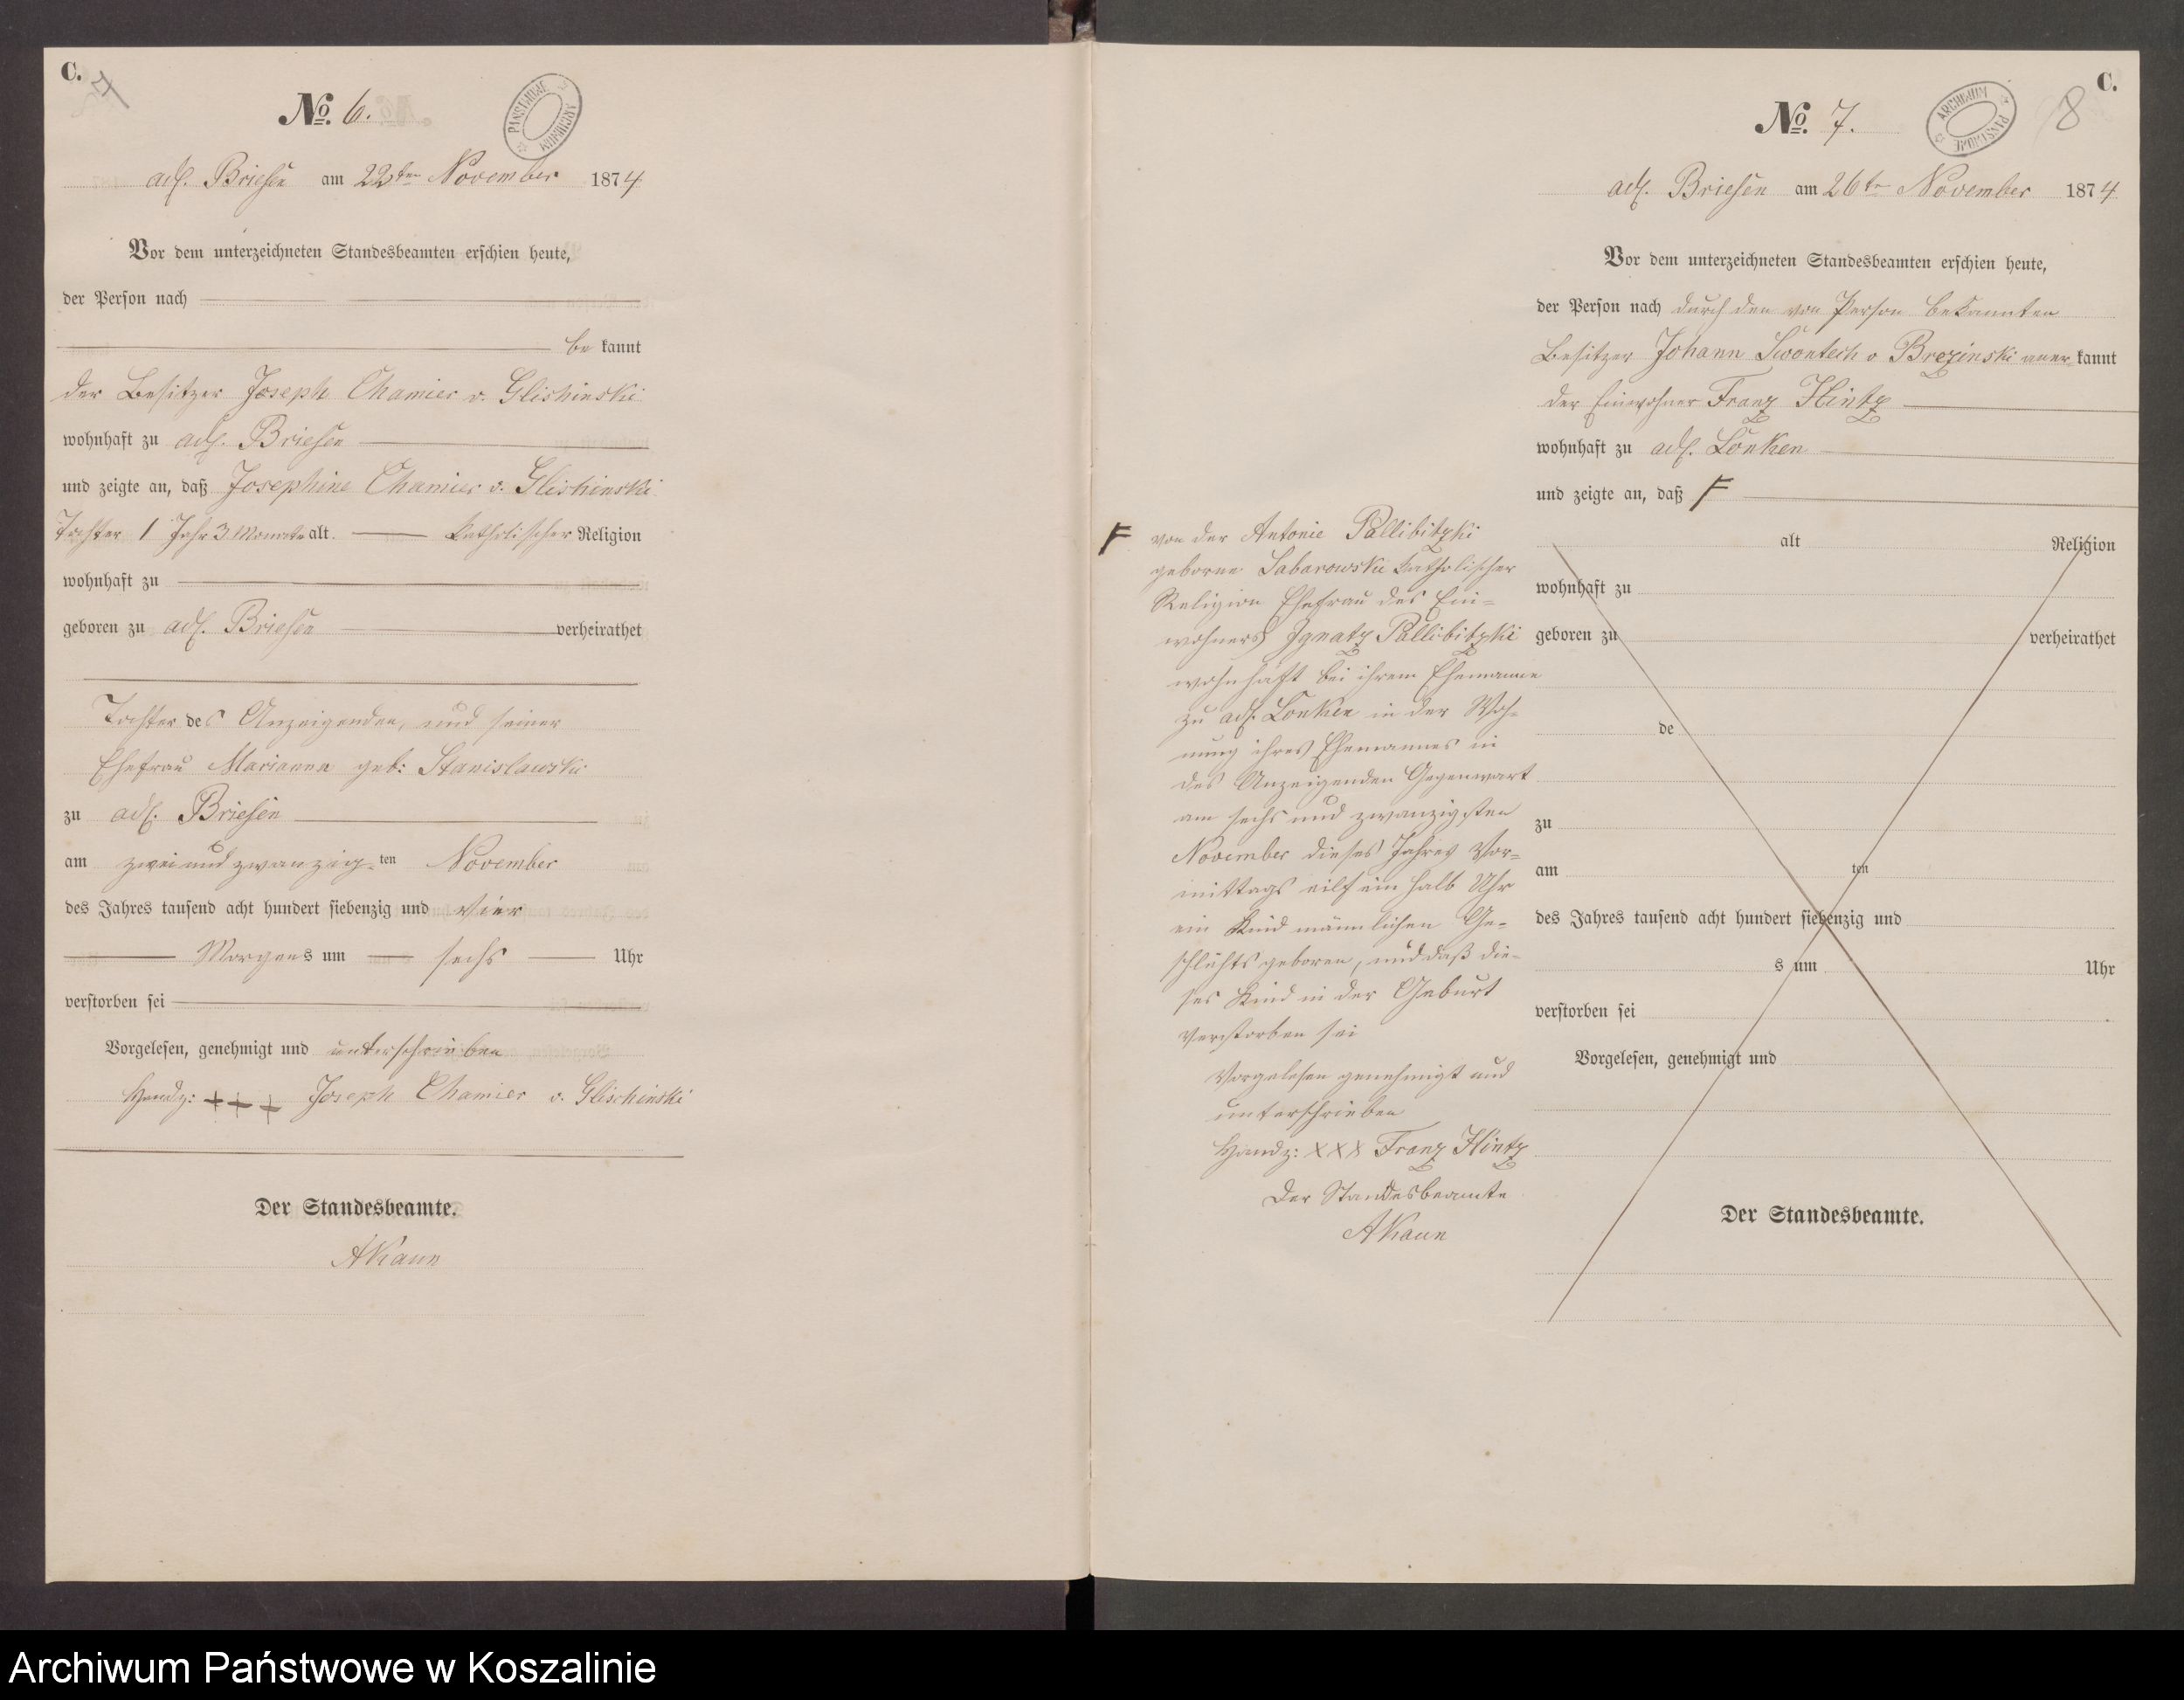 C.
7
No. 6.
PAŃSTWOWE ARCHIWUM
adl. Briesen am 22ten November 1874
Vor dem unterzeichneten Standesbeamten erschien heute,
der Person nach
be kannt
der Besitzer Joseph Chamier v. Glishinski
wohnhaft zu adl. Briesen
und zeigte an, daß Josephine Chamier v. Glishinski
Tochter 1 Jahr 3 Monate alt. katholischer Religion
wohnhaft zu
geboren zu adl. Briesen verheirathet
Tochter des Anzeigenden, und seiner
Ehefrau Marianna geb: Stanislawski
zu adl. Briesen
am zwei und zwanzig-ten November
des Jahres tausend acht hundert siebenzig und vier
Morgens um sechs Uhr
verstorben sei
Vorgelesen, genehmigt und unterschrieben
Handz: +++ Joseph Chamier v. Glischinski
Der Standesbeamte.
AKaun
C.
8
No. 7.
ARCHIWUM PAŃSTWOWE
adl. Briesen am 26te November 1874
Vor dem unterzeichneten Standesbeamten erschien heute,
der Person nach durch den von Person bekannten
Besitzer Johann Swontech v Brezinski aner- kannt
der Einwohner Franz Hintz
wohnhaft zu adl. Lonken
und zeigte an, daß F
alt Religion
wohnhaft zu
geboren zu verheirathet
de
zu
am ten
des Jahres tausend acht hundert siebenzig und
s um Uhr
verstorben sei
Vorgelesen, genehmigt und
Der Standesbeamte.
F von der Antonie Pallibitzki
geborne Labarowski katholischer
Religion Ehefrau des Ein=
wohners Ignatz Pallibitzki
wohnhaft bei ihrem Ehemanne
zu adl. Lonken in der Woh-
nung ihres Ehemannes in
des Anzeigenden Gegenwart
am sechs und zwanzigsten
November dieses Jahres Vor=
mittags eilf ein halb Uhr
ein Kind männlichen Ge=
schlechts geboren, und daß die-
ses Kind in der Geburt
verstorben sei
Vorgelesen genehmigt und
unterschrieben
Handz: XXX Franz Hintz
Der Standesbeamte
AKaun
Archiwum Państwowe w Koszalinie